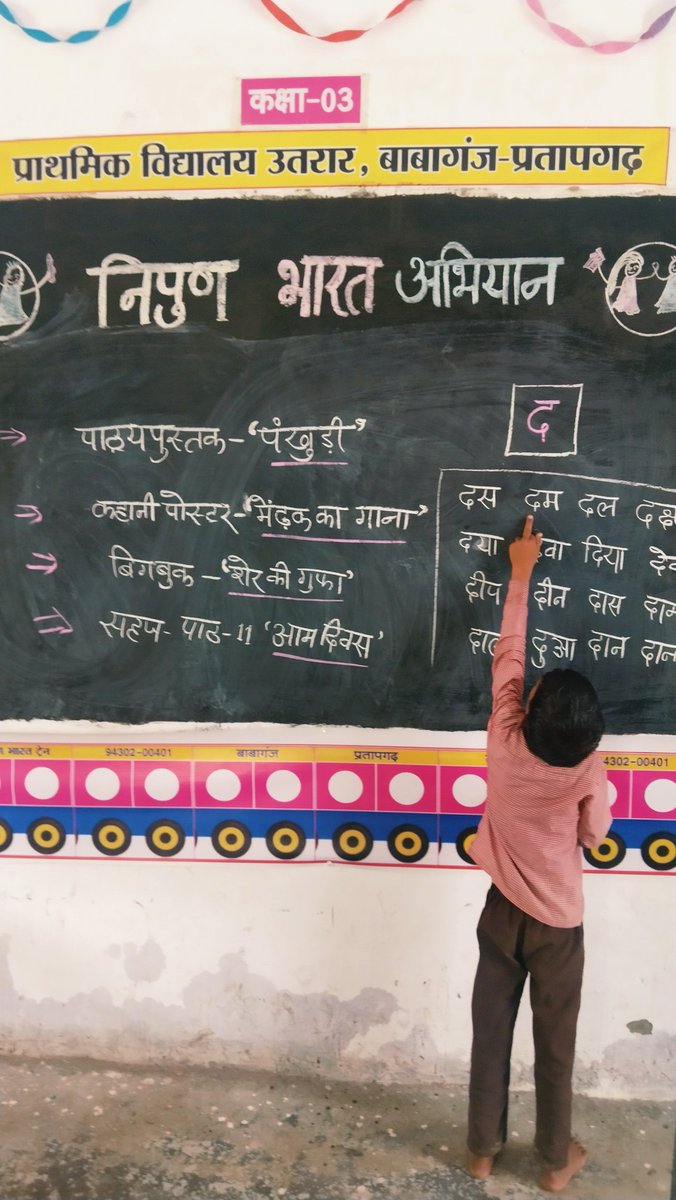 कक्षा-03
प्राथमिक विद्यालय उतरार, बाबागंज-प्रतापगढ़
निपुण भारत अभियान
पाठ्यपुस्तक - 'पंखुड़ी'
कहानी पोस्टर - 'मेंढ़क का गाना'
बिगबुक - 'शेर की गुफा'
सहज - पाठ - 11 'आम दिवस'
द
दस दम दल
दया दिया
दीप दीन दास
दुआ दान
भारत ट्रेन 94302-00401 बाबागंज प्रतापगढ़ 4302-00401